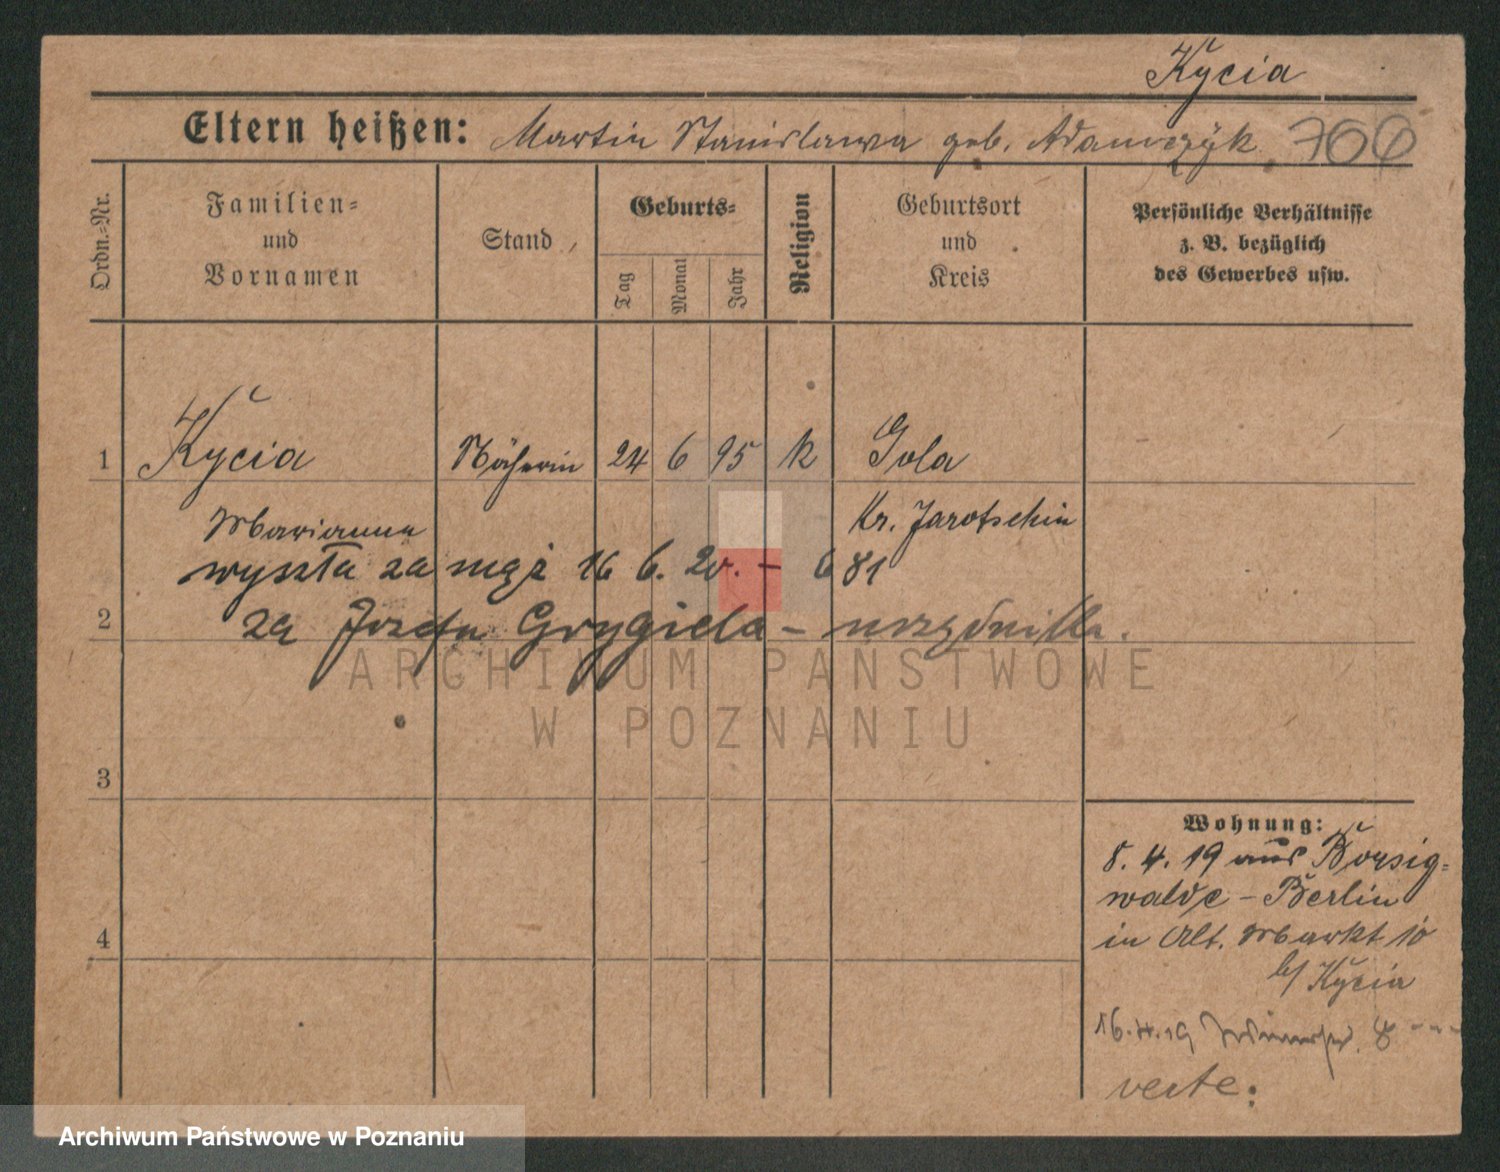 Kycia
Eltern heißen: Martin Stanislawa geb. Adamczyk 700
Ordn.-Nr.
Familien-
und
Vornamen
Stand
Geburts-
Tag
Monat
Jahr
Religion
Geburtsort
und
Kreis
Persönliche Verhältnisse
z. B. bezüglich
des Gewerbes usw.
1 Kycia Näherin 24 6 95 k Gola
Marianna Kr. Jarotschin
wyszła za mąż 16 6. 20. – 681
2 za Józefa Grygiela – urzędnika.
ARCHIWUM PAŃSTWOWE
W POZNANIU
3
4
Wohnung:
8. 4. 19 aus Borsig-
walde – Berlin
in Alt. Markt 10
b/ Kycia
16.4.19
verte:
Archiwum Państwowe w Poznaniu